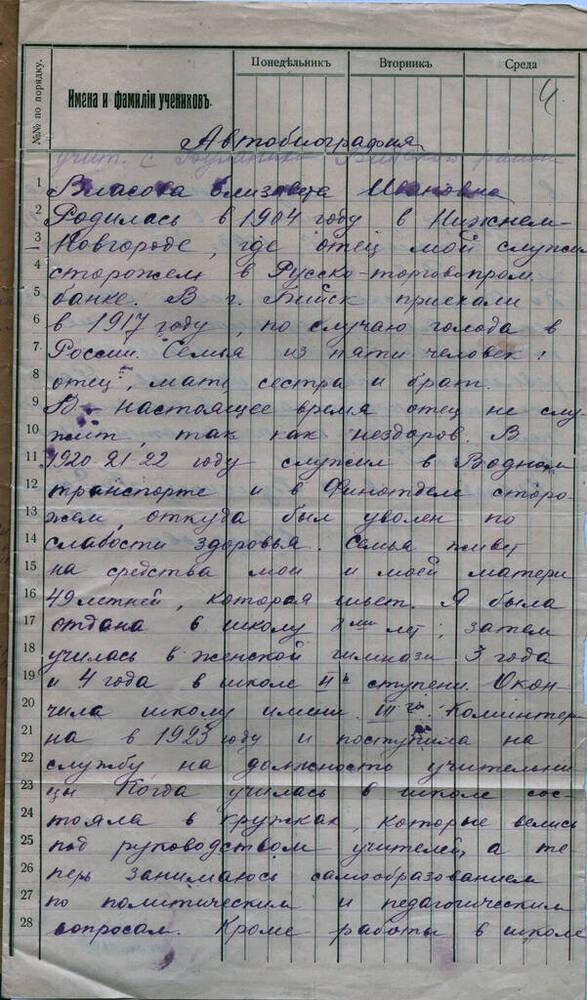 №№ по порядку.
Имена и фамиліи учениковъ.
Понедѣльникъ
Вторникъ
Среда
4
Автобиография
учит. с.
1 Власова Елизавета Ивановна
2 Родилась в 1904 году в Нижнем-
3 Новгороде, где отец мой служил
4 сторожем в Русско-торговопром
5 банке. В г. Бийск приехали
6 в 1917 году, по случаю голода в
7 России. Семья из пяти человек:
8 отец, мать, сестра и брат.
9 В настоящее время отец не слу-
10 жит, так как нездоров. В
11 1920-21-22 году служил в Водном
12 транспорте и в Финотделе сторо
13 жем, откуда был уволен по
14 слабости здоровья. Семья живет
15 на средства мои и моей матери
16 49 летней, которая шьет. Я была
17 отдана в школу 8ми лет; затем
18 училась в женской гимназии 3 года
19 и 4 года в школе IIй ступени. Окон
20 чила школу имени IIIго Коминтер
21 на в 1923 году и поступила на
22 службу на должность учительни
23 цы. Когда училась в школе сос-
24 тояла в кружках, которые велись
25 под руководством учителей, а те
26 перь занимаюсь самообразованием
27 по политическим и педагогическим
28 вопросам. Кроме работы в школе